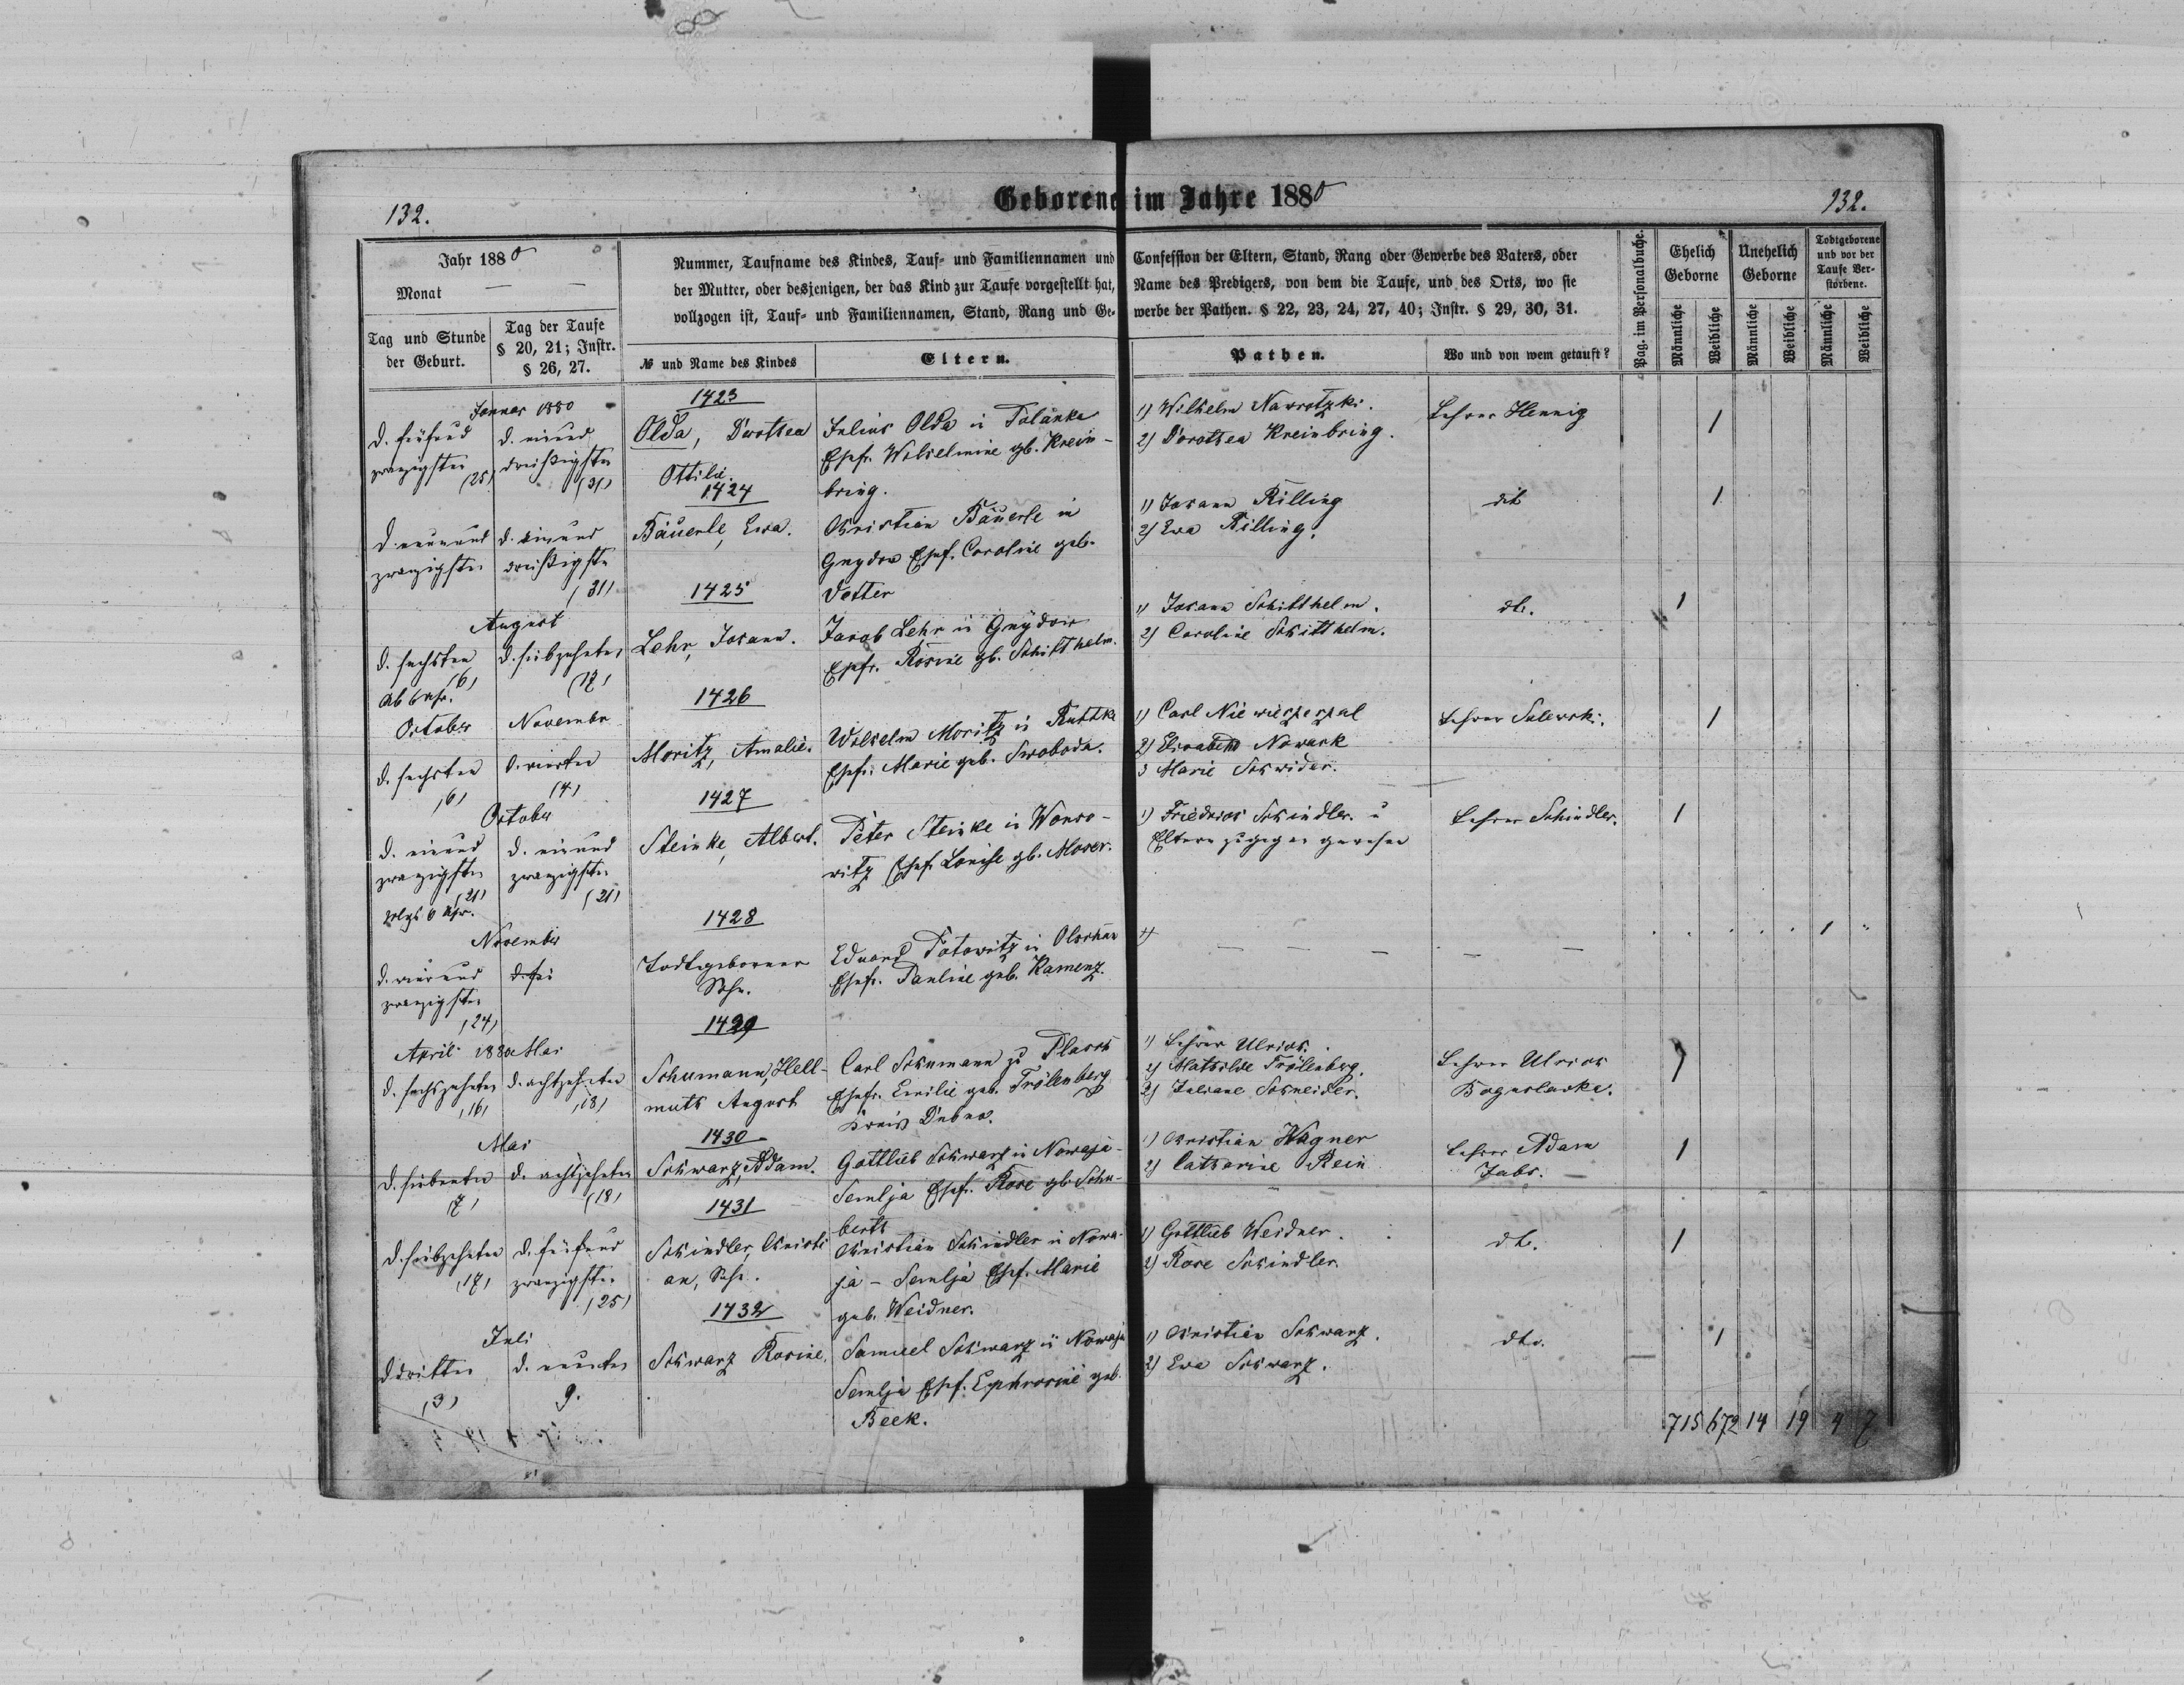 132.
Geborene im Jahre 1880
132.
Jahr 1880
Monat — —
Tag und Stunde der Geburt.
Tag der Taufe § 20, 21; Instr. § 26, 27.
Nummer, Taufname des Kindes, Tauf- und Familiennamen und
der Mutter, oder desjenigen, der das Kind zur Taufe vorgestellt hat,
vollzogen ist, Tauf- und Familiennamen, Stand, Rang und Ge-
№ und Name des Kindes
Eltern.
Confession der Eltern, Stand, Rang oder Gewerbe des Vaters, oder
Name des Predigers, von dem die Taufe, und des Orts, wo sie
werbe der Pathen. § 22, 23, 24, 27, 40; Instr. § 29, 30, 31.
Pathen.
Wo und von wem getauft?
Pag. im Personalbuche.
Ehelich Geborne
Unehelich Geborne
Todtgeborene und vor der Taufe Ver-storbene.
Männliche
Weibliche
Männliche
Weibliche
Männliche
Weibliche
Januar 1880
d. fünfund
zwanzigsten
(25)
d. einund
dreißigsten
(31)
1423
Olda, Dorothea
Ottilie.
Julius Olda in Polanka
Ehefr. Wilhelmine gb. Krein-
bring.
1) Wilhelm Nawrotzki.
2) Dorothea Kreinbring.
Lehrer Hennig
1
d. neunund
zwanzigsten
d. einund
dreißigsten
(31)
1424
Bäuerle, Ewa.
Christian Bäuerle in
Gnydow Ehef. Caroline geb.
Vetter
1) Johann Rilling
2) Ewa Rilling.
dito
1
August
d. sechsten
(6)
Ab 6 Uhr.
d. siebzehnten
(17)
1425
Lehr, Johann.
Jacob Lehr in Gnydow
Ehefr. Rosine gb. Schitthelm.
1) Johann Schitthelm.
2) Caroline Schitthelm.
dt.
1
October
d. sechsten
(6)
November
d. vierten
(4)
1426
Moritz, Amalie.
Wilhelm Moritz in Ruttka
Ehefr. Marie geb. Swoboda.
1) Carl Niewieszeszal
2) Elisabeth Nowack
3 Marie Schwider.
Lehrer Salewski.
1
October
d. einund
zwanzigsten
(21)
Mgs 6 Uhr.
d. einund
zwanzigsten
(21)
1427
Steinke, Albert.
Peter Steinke in Wonso-
witz Ehef. Louise gb. Moser.
1) Friedrich Schindler. u
Eltern zugegen gewesen
Lehrer Schindler.
1
November
d. vierund
zwanzigsten
(24)
1428
Todtgeborner
Sohn.
Eduard Potowitz in Olschan
Ehefr. Pauline geb. Kamenz.
— — — — —
1
April 1880
d. sechszehnten
(16)
Mai
d. achtzehnten
(18)
1429
Schumann, Hell-
muth August
Carl Schumann zu Plasch
Ehefr. Emilie geb. Frölenberg
Kreis Dubno.
1) Lehrer Ulrich.
2) Mathilde Frölenberg.
3) Juliane Schneider.
Lehrer Ulrich
Boguslawka.
1
Mai
d. siebenten
(7)
d. achtzehnten
(18)
1430
Schwarz, Adam.
Gottlieb Schwarz in Nowaja-
Semlja Ehef. Rose gb Schu-
berth
1) Christian Wagner
2) Catharine Rein
Lehrer Adam
Jabs. —
1
d. siebzehnten
(17)
d. fünfund
zwanzigsten
(25)
1431
Schindler, Christi
an, Sohn.
Christian Schindler in Nowa-
ja - Semlja Ehef. Marie
geb. Weidner.
1) Gottlieb Weidner.
2) Rose Schindler.
dt.
1
Juli
d dritten
(3)
d. neunten
9.
1432
Schwarz Rosine,
Samuel Schwarz in Nowaja
Semlja Ehef. Ephrosine geb.
Beck.
1) Christian Schwarz.
2) Ewa Schwarz.
dto.
1
715 672 14 19 4 7